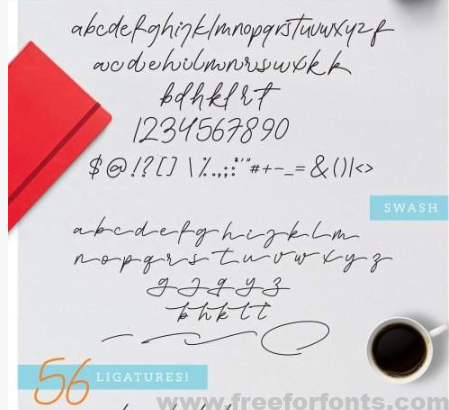 abcdefghijklmnopqrstuvwxyz
acdehilmnrsuwxkk
bdhklrt
1234567890
$@!?[] \%.,;:"'"#+-_=&()|<>
SWASH
abcdefghijklm
nopqrstuvwxyz
gjqyz
bhkltt
56 LIGATURES!
www.freeforfonts.com